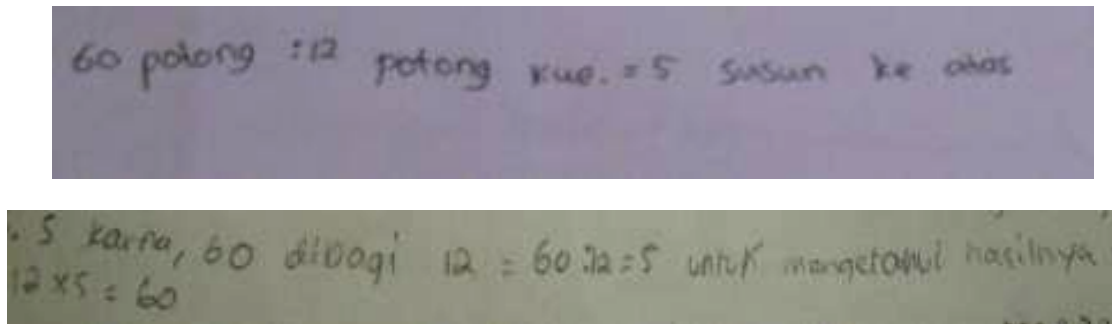 60 potong : 12 potong kue. = 5 susun ke atas
. 5 karna, 60 dibagi 12 = 60 : 12 = 5 untuk mengetahui hasilnya
12 x 5 = 60